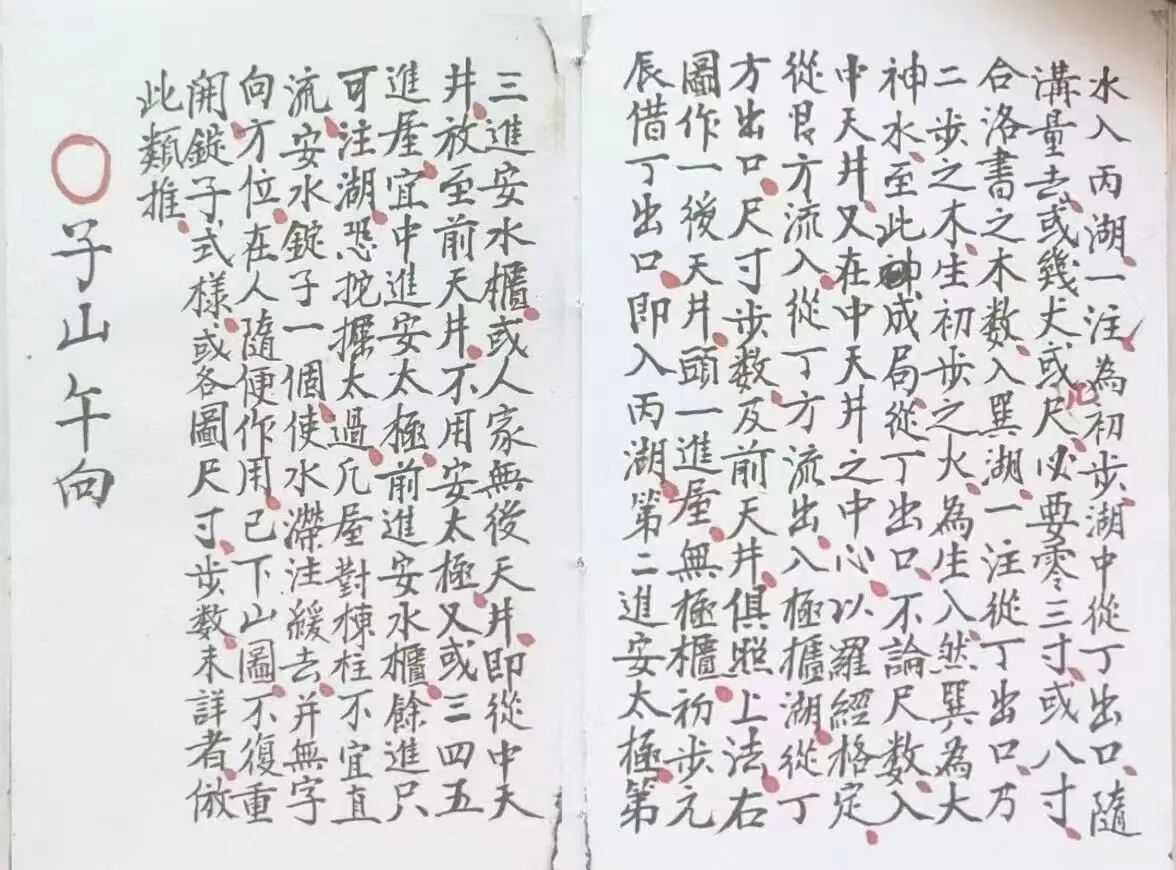 水入丙湖一注為初步湖中從丁出口隨
溝量去或幾丈或尺必要零三寸或八寸
合洛書之木数入巽湖一注從丁出口乃
二步之木生初步之火為生入然巽為大
神水至此神成局從丁出口不論尺數入
中天井又在中天井之中心以羅經格定
從艮方流入從丁方流出入極櫃湖從丁
方出口尺寸步数及前天井俱照上法右
圖作一後天井頭一進屋無極櫃初步元
辰借丁出口即入丙湖第二進安太極第
三進安水櫃或人家無後天井即從中天
井放至前天井不用安太極又或三四五
進屋宜中進安太極前進安水櫃餘進只
可注湖恐挖摞太過凢屋對棟柱不宜直
流安水錠子一個使水瀠注緩去并無字
向方位在人隨便作用已下山圖不復重
開錠子式樣或各圖尺寸步数未詳者倣
此類推
子山午向